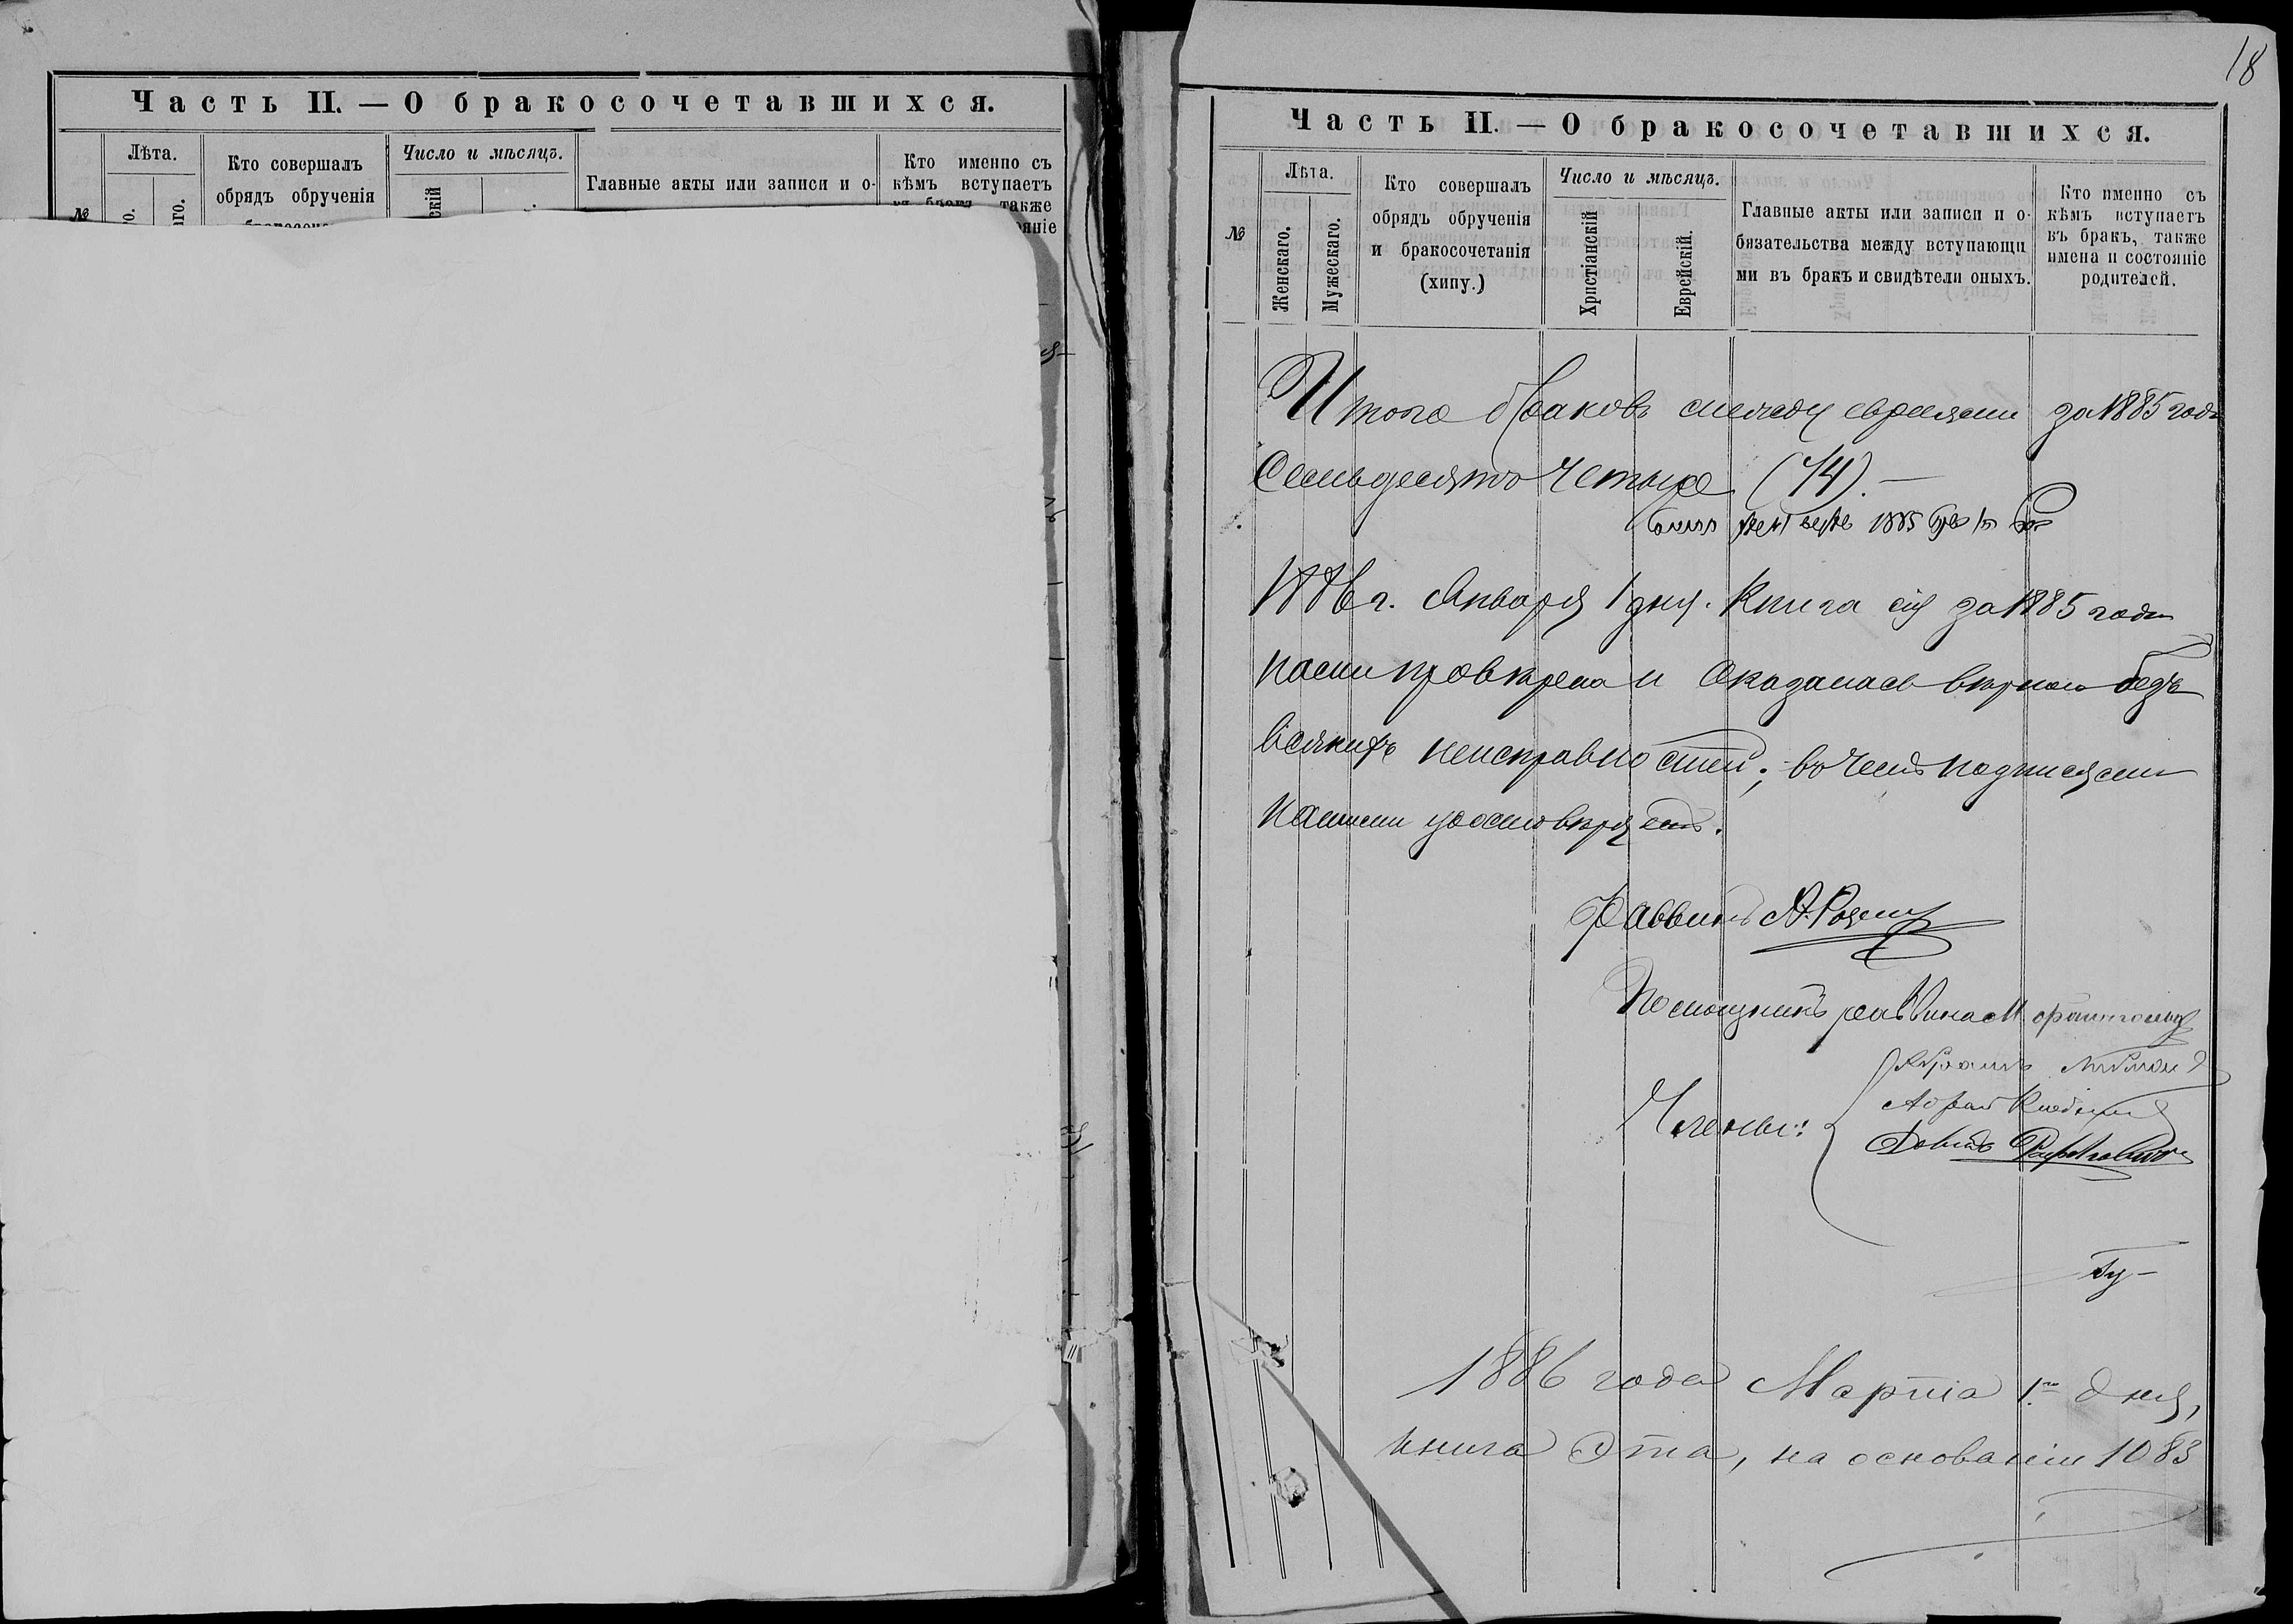 Часть II. — О бракосочетавшихся.
№
Лѣта.
Кто совершалъ
обрядъ обрученія
Число и мѣсяцъ.
Главные акты или записи и о-
Кто именно съ
кѣмъ вступаетъ
также
18
Часть II. — О бракосочетавшихся.
№
Лѣта.
Женскаго.
Мужескаго.
Кто совершалъ
обрядъ обрученія
и бракосочетанія
(хипу.)
Число и мѣсяцъ.
Христіанскій
Еврейскій.
Главные акты или записи и о-
бязательства между вступающи
ми въ бракъ и свидѣтели оныхъ.
Кто именно съ
кѣмъ вступаетъ
въ бракъ, также
имена и состояніе
родителей.
Итого браковъ между евреями за 1885 годъ
Семьдесятъ Четыре (74). —
1885
1886 г. Января 1 дня. Книга сія за 1885 годъ
нами провѣрена и Оказалась вѣрною безъ
всякихъ неисправностей; въ чемъ подписями
нашими удостовѣряемъ.
Раввинъ А.
Помощникъ раввина М.
Члены:
Абрамъ
Давидъ
1886 года Марта 1го дня,
книга эта, на основаніи 1083